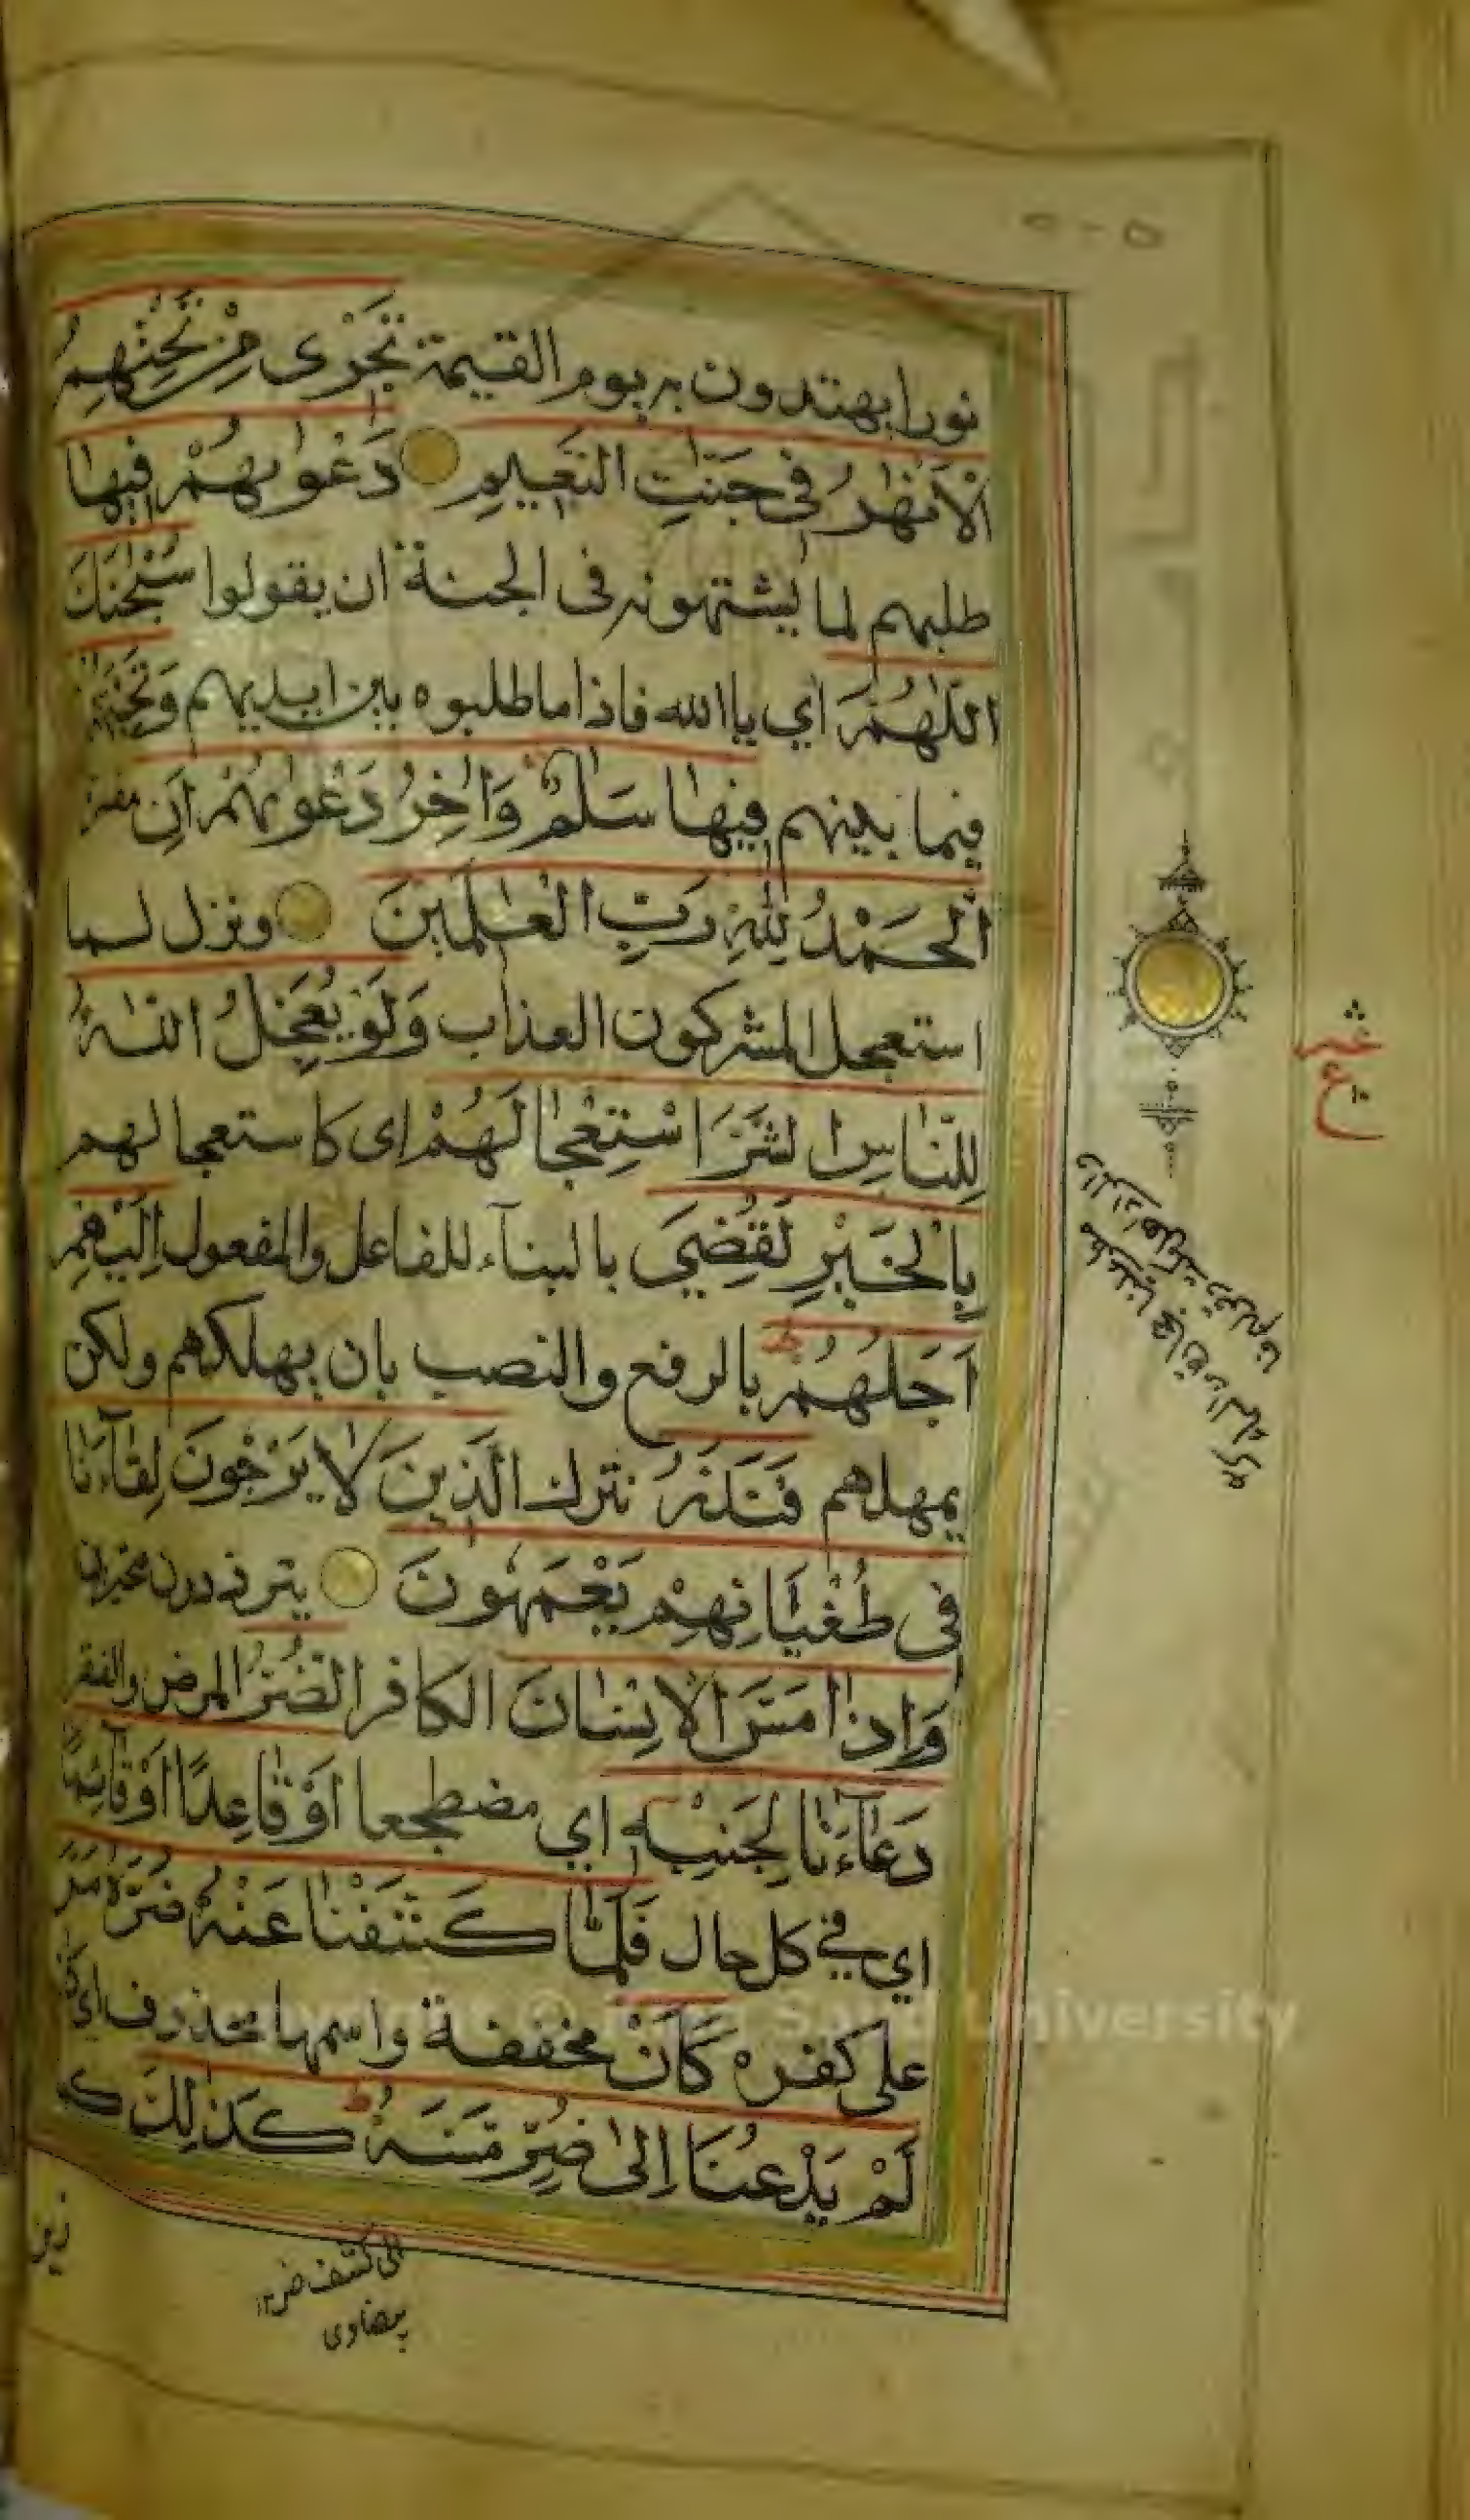 نورا يهتدون به يوم القيمة تَجْرِى مِنْ تَحْتِهِمُ
الْاَنْهٰرُ فِى جَنّٰتِ النَّعِيمِ دَعْوٰيهُمْ فِيهَا
طلبهم لما يشتهونه فى الجنة ان يقولوا سُبْحٰنَكَ
اللّٰهُمَّ اي يا الله فاذا ما طلبوه بين ايديهم وَتَحِيَّتُهُمْ
فيما بينهم فِيهَا سَلٰمٌ وَاٰخِرُ دَعْوٰيهُمْ اَنِ مفسرة
اَلْحَمْدُ لِلّٰهِ رَبِّ الْعٰلَمِينَ ونزل لما
استعجل المشركون العذاب وَلَوْ يُعَجِّلُ اللّٰهُ
لِلنَّاسِ الشَّرَّ اسْتِعْجَالَهُمْ اى كاستعجالهم
بِالْخَيْرِ لَقُضِيَ بالبنآء للفاعل والمفعول اِلَيْهِمْ
اَجَلُهُمْ بالرفع والنصب بان يهلكهم ولكن
يمهلهم فَنَذَرُ نترك الَّذِينَ لَا يَرْجُونَ لِقَآءَنَا
فِى طُغْيَانِهِمْ يَعْمَهُونَ يترددون متحيرين
وَاِذَا مَسَّ الْاِنْسَانَ الكافر الضُّرُّ المرض والفقر
دَعَانَا لِجَنْبِهٖ اي مضطجعا اَوْ قَاعِدًا اَوْ قَآئِمًا
اي في كل حال فَلَمَّا كَشَفْنَا عَنْهُ ضُرَّهُ مَرَّ
على كفره كَاَنْ مخففة واسمها محذوف اي كانه
لَمْ يَدْعُنَا اِلٰى ضُرٍّ مَسَّهُ كَذٰلِكَ ك
زين
الى كشف ضر ١٢
بيضاوى
عشر
ع
Saud University